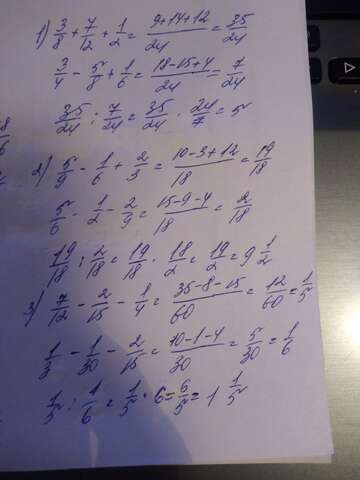 1) 3/8 + 7/12 + 1/2 = (9+14+12)/24 = 35/24
3/4 - 5/8 + 1/6 = (18-15+4)/24 = 7/24
35/24 : 7/24 = 35/24 · 24/7 = 5
2) 5/9 - 1/6 + 2/3 = (10-3+12)/18 = 19/18
5/6 - 1/2 - 2/9 = (15-9-4)/18 = 2/18
19/18 : 2/18 = 19/18 · 18/2 = 19/2 = 9 1/2
3) 7/12 - 2/15 - 1/4 = (35-8-15)/60 = 12/60 = 1/5
1/3 - 1/30 - 2/15 = (10-1-4)/30 = 5/30 = 1/6
1/5 : 1/6 = 1/5 · 6 = 6/5 = 1 1/5